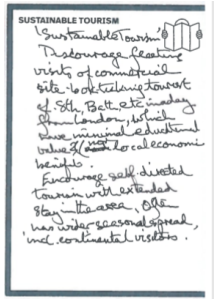 SUSTAINABLE TOURISM
'Sustainable Tourism'
Discourage fleeting
visits of commercial
site-box ticking tourist
of Sth, Bath, etc in a day
from London, which
have minimal educational
value & (not) local economic
benefit.
Encourage self-directed
tourism with extended
stay in the area, often
has wider seasonal spread,
incl. continental visitors.